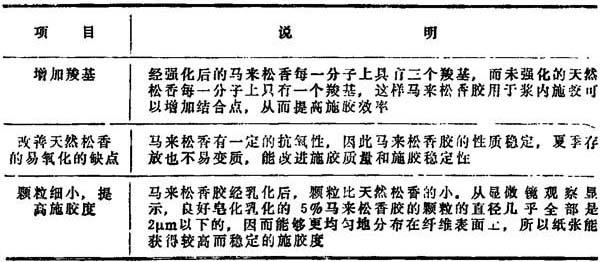 项 目 说 明
增加羧基
经强化后的马来松香每一分子上具有三个羧基，而未强化的天然
松香每一分子上只有一个羧基，这样马来松香胶用于浆内施胶可
以增加结合点，从而提高施胶效率
改善天然松香
的易氧化的缺点
马来松香有一定的抗氧性，因此马来松香胶的性质稳定，夏季存
放也不易变质，能改进施胶质量和施胶稳定性
颗粒细小，提
高施胶度
马来松香胶经乳化后，颗粒比天然松香的小。从显微镜观察显
示，良好皂化乳化的5%马来松香胶的颗粒的直径几乎全部是
2μm以下的，因而能够更均匀地分布在纤维表面上，所以纸张能
获得较高而稳定的施胶度